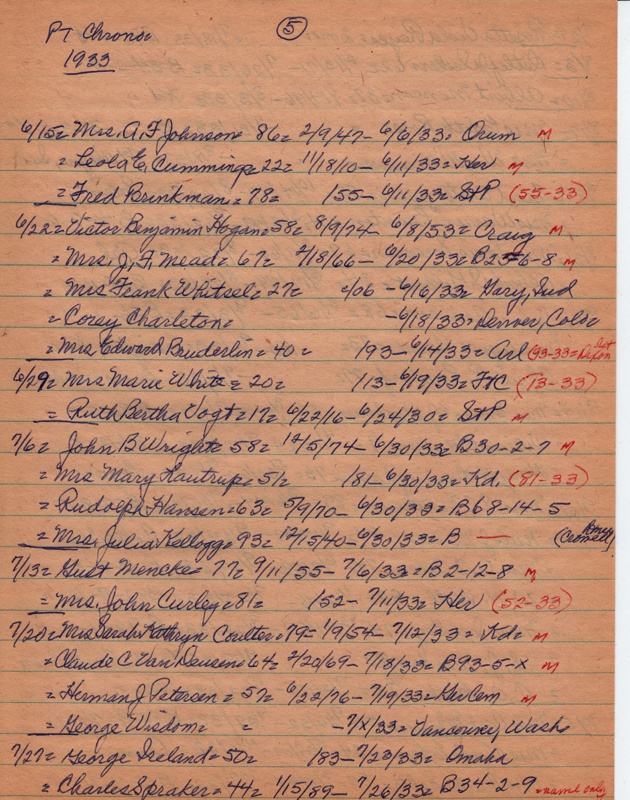 PT Chrono= (5)
1933
6/15= Mrs. A. F. Johnson= 86= 2/9/47- 6/6/33= Orum M
= Leola E. Cummings= 22= 11/18/10- 6/11/33= Her M
= Fred Brinkman= 78= 155- 6/11/33= StP (55-33)
6/22= Victor Benjamin Hogan= 58= 8/9/74- 6/8/53= Craig M
= Mrs. J. F. Mead= 67= 2/18/66- 6/20/33= B23-6-8 M
= Mrs Frank Whitsel= 27= c/06 -6/16/33= Gary, Ind
= Corey Charleton= -6/18/33= Denver, Colo=
= Mrs Edward Bruderlin= 40= 193- 6/14/33= Arl (93-33=
6/29= Mrs Marie White= 20= 113- 6/19/33= FC (13-33)
= Ruth Bertha Vogt= 17= 6/22/16- 6/24/30= StP M
7/6= John B Wright= 58= 12/5/74- 6/30/33= B30-2-7 M
= Mrs Mary Kautrup= 51= 181- 6/30/33= Kd. (81-33)
= Rudolph Hansen= 63= 5/9/70- 6/30/33= B68-14-5
= Mrs. Julia Kellogg= 93= 12/15/40- 6/30/33= B —
7/13= Gust Mencke= 77= 9/11/55- 7/6/33= B2-12-8 M
= Mrs. John Curley= 81= 152- 7/11/33= Her (52-33)
7/20= Mrs Sarah Kathryn Coulter= 79= 1/9/54- 7/12/33= Kd= M
= Claude C Van Deusen= 64= 2/20/69- 7/18/33= B93-5-X M
= Herman J Petersen= 57= 6/22/76- 7/19/33= Her Cem M
= George Wisdom= = -7/X/33= Vancouver, Wash=
7/27= George Ireland= 50= 183- 7/23/33= Omaha
= Charles Spraker= 44= 1/15/89- 7/26/33= B34-2-9 =name only